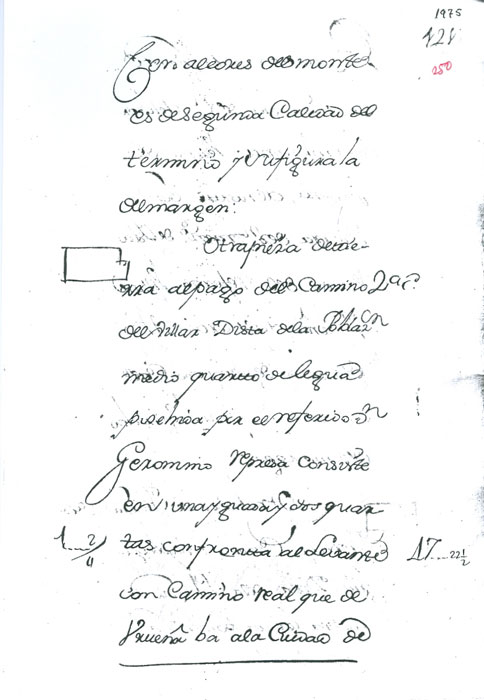 1975
121
250
alcores desmonte
es de segunda Calidad del
termino y su figura la
del margen.
Otra pieza de tie-
rra al pago del Camino 2ª C.
del Villar Dista de la Poblaon
medio quarto de legua
posehida por el referido Dn
Geronimo Represa Consiste
en una yguada y dos quar
1 .. 2/4
tas confronta al Levante
17 .. 22 1/2
con Camino real que de
Urueña ba a la Ciudad de